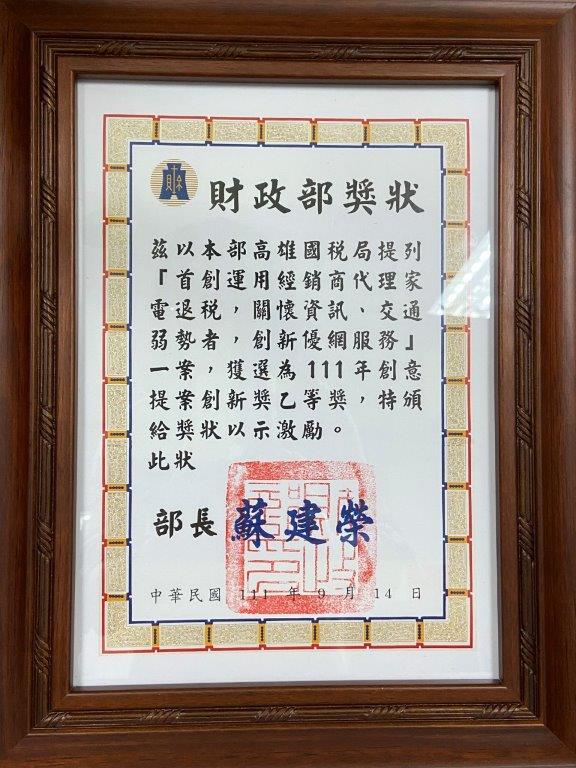 財政部獎狀
茲以本部高雄國稅局提列
「首創運用經銷商代理家
電退稅，關懷資訊、交通
弱勢者，創新優網服務」
一案，獲選為111年創意
提案創新獎乙等獎，特頒
給獎狀以示激勵。
此狀
部長 蘇建榮
中華民國 111 年 9 月 14 日